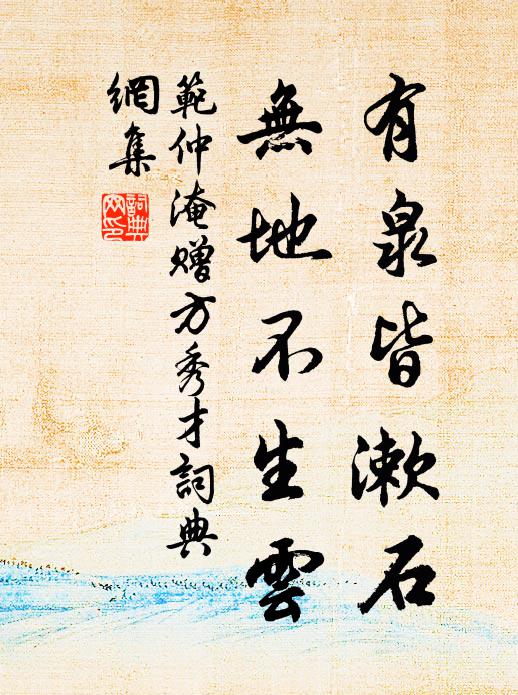 有泉皆漱石
無地不生雲
範仲淹贈方秀才詞典
網集
詞典網印